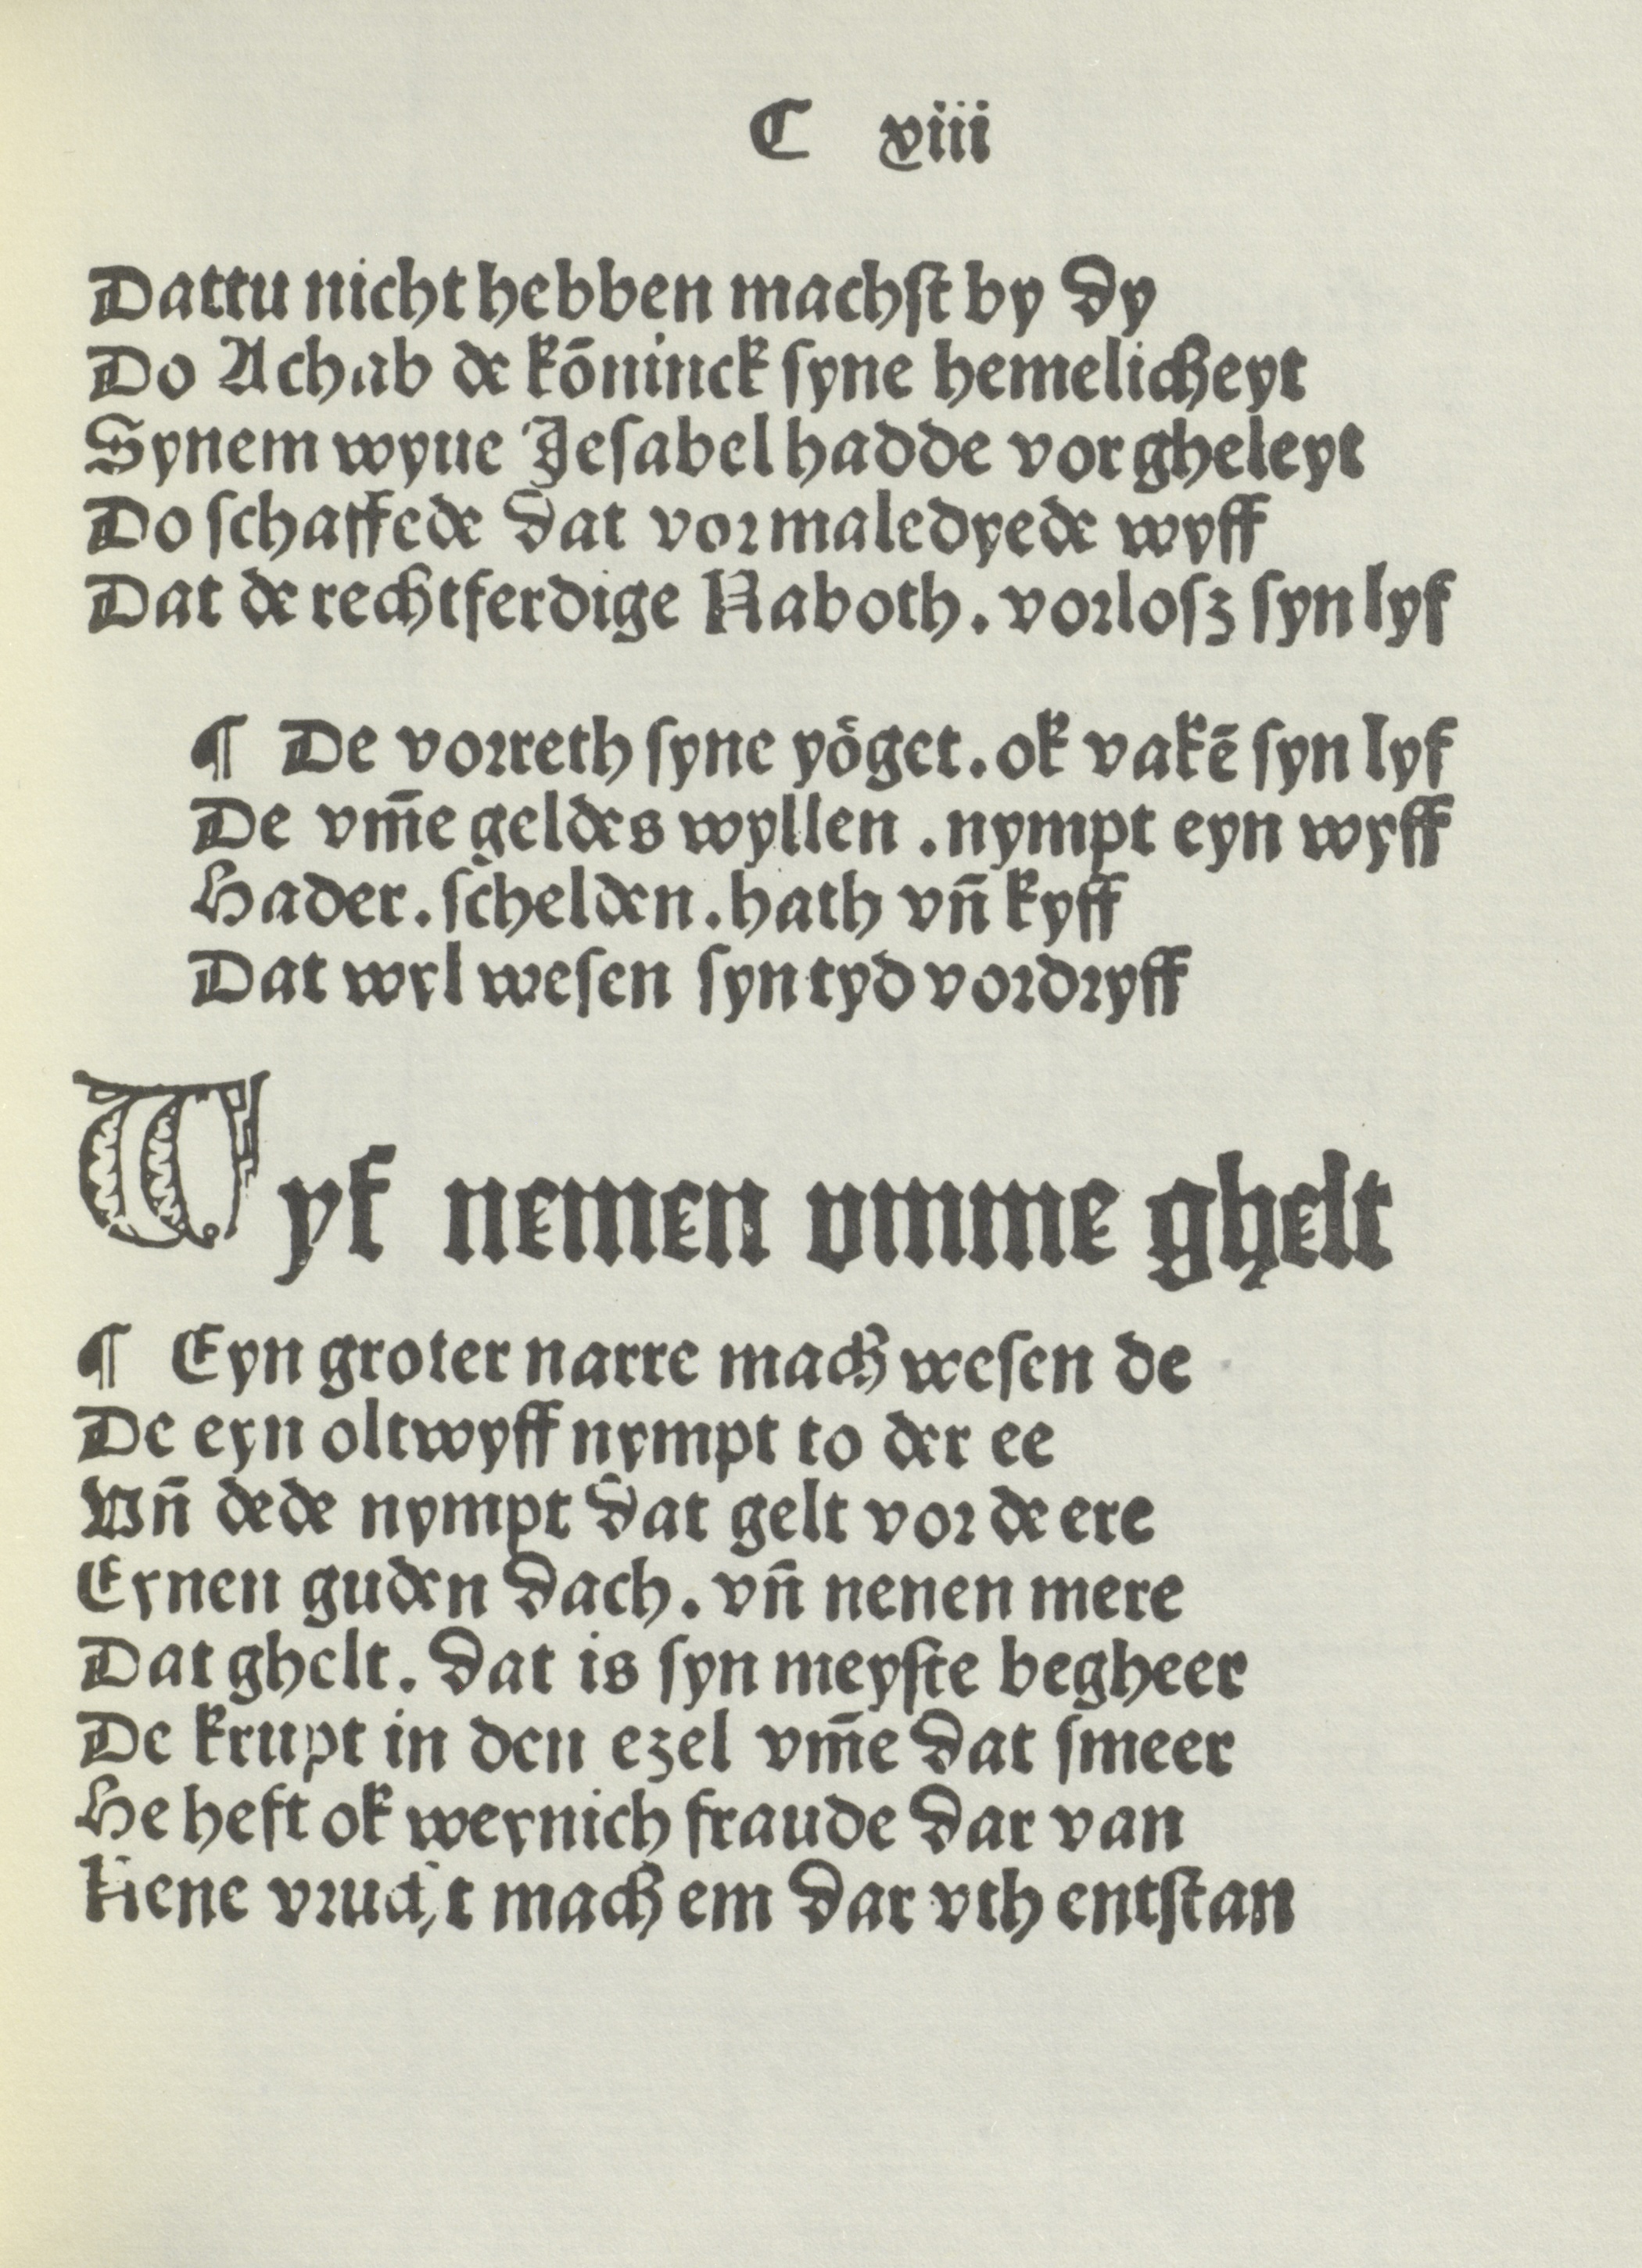 C xviii
Dattu nicht hebben machſt by dy
Do Achab de kōninck ſyne hemelicheyt
Synem wyue Jeſabel hadde vor gheleyt
Do ſchaffede dat vormaledyede wyff
Dat de rechtferdige Naboth. vorloſz ſyn lyf
¶ De vorreth ſyne yoͤget. ok vakē ſyn lyf
De vm̄e geldes wyllen . nympt eyn wyff
Hader. ſchelden. hath vn̄ kyff
Dat wyl weſen ſyn tyd vordryff
Wyf nemen vmme ghelt
¶ Eyn groter narre mach weſen de
De eyn olt wyff nympt to der ee
Vn̄ dede nympt dat gelt vor de ere
Eynen guden dach. vn̄ nenen mere
Dat ghelt. dat is ſyn meyſte begheer
De krupt in den ezel vm̄e dat ſmeer
He heft ok weynich fraude dar van
Nene vrucht mach em dar vth entſtan